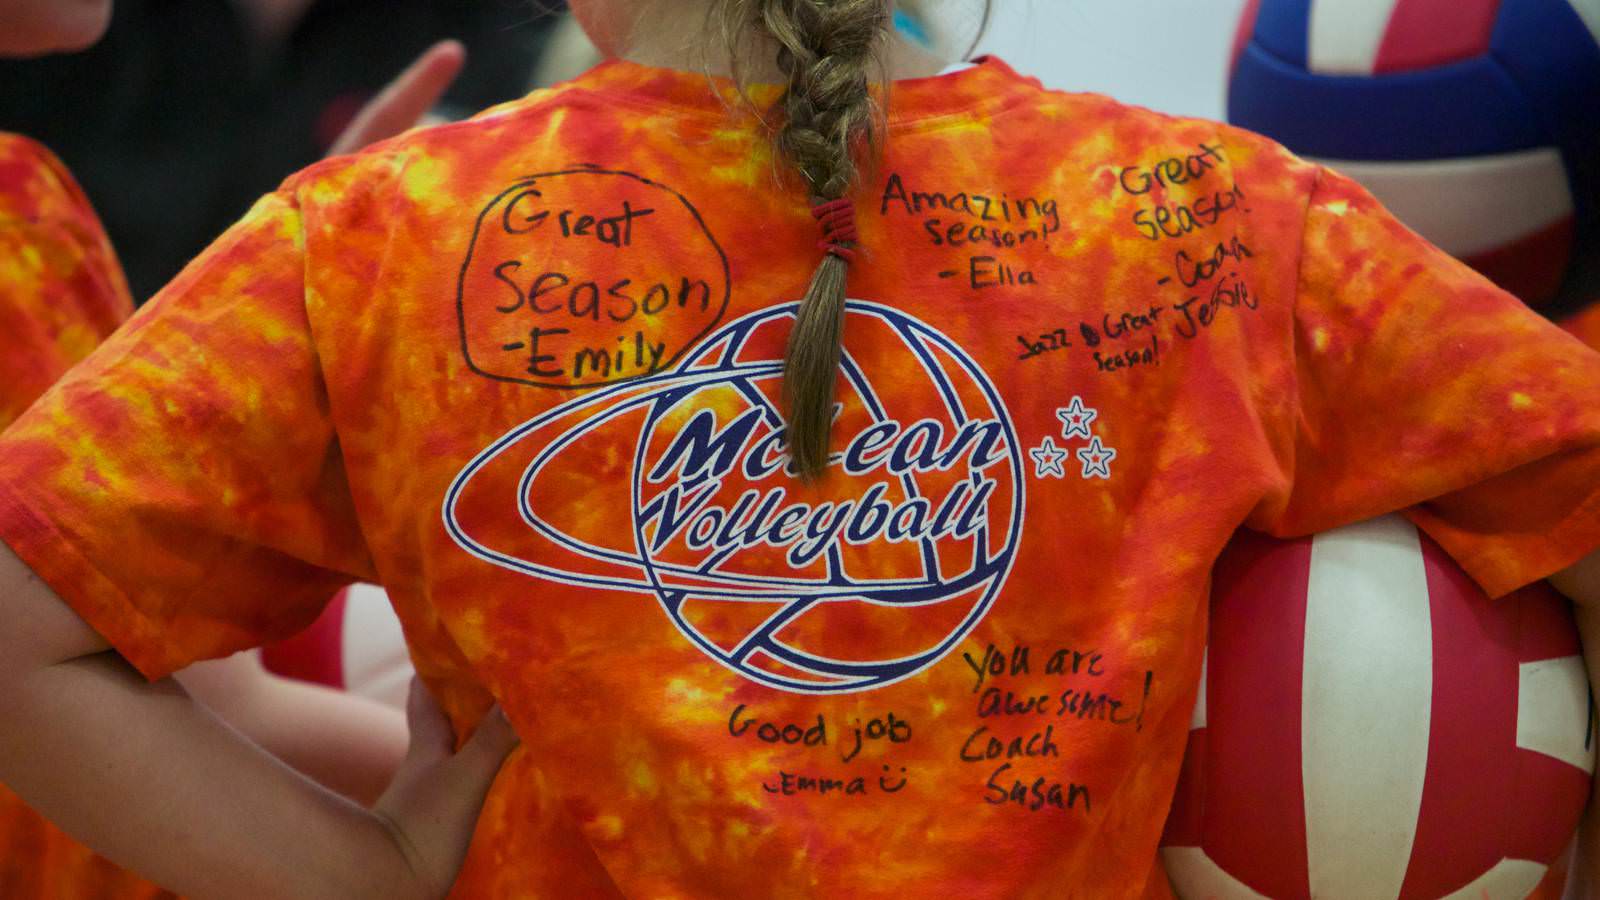 Great
Season
-Emily
Amazing
Season!
-Ella
Great
season!
-Coach
Jessie
Jazz Great
Season!
McLean
Volleyball
You are
awesome!
Coach
Susan
Good job
-Emma